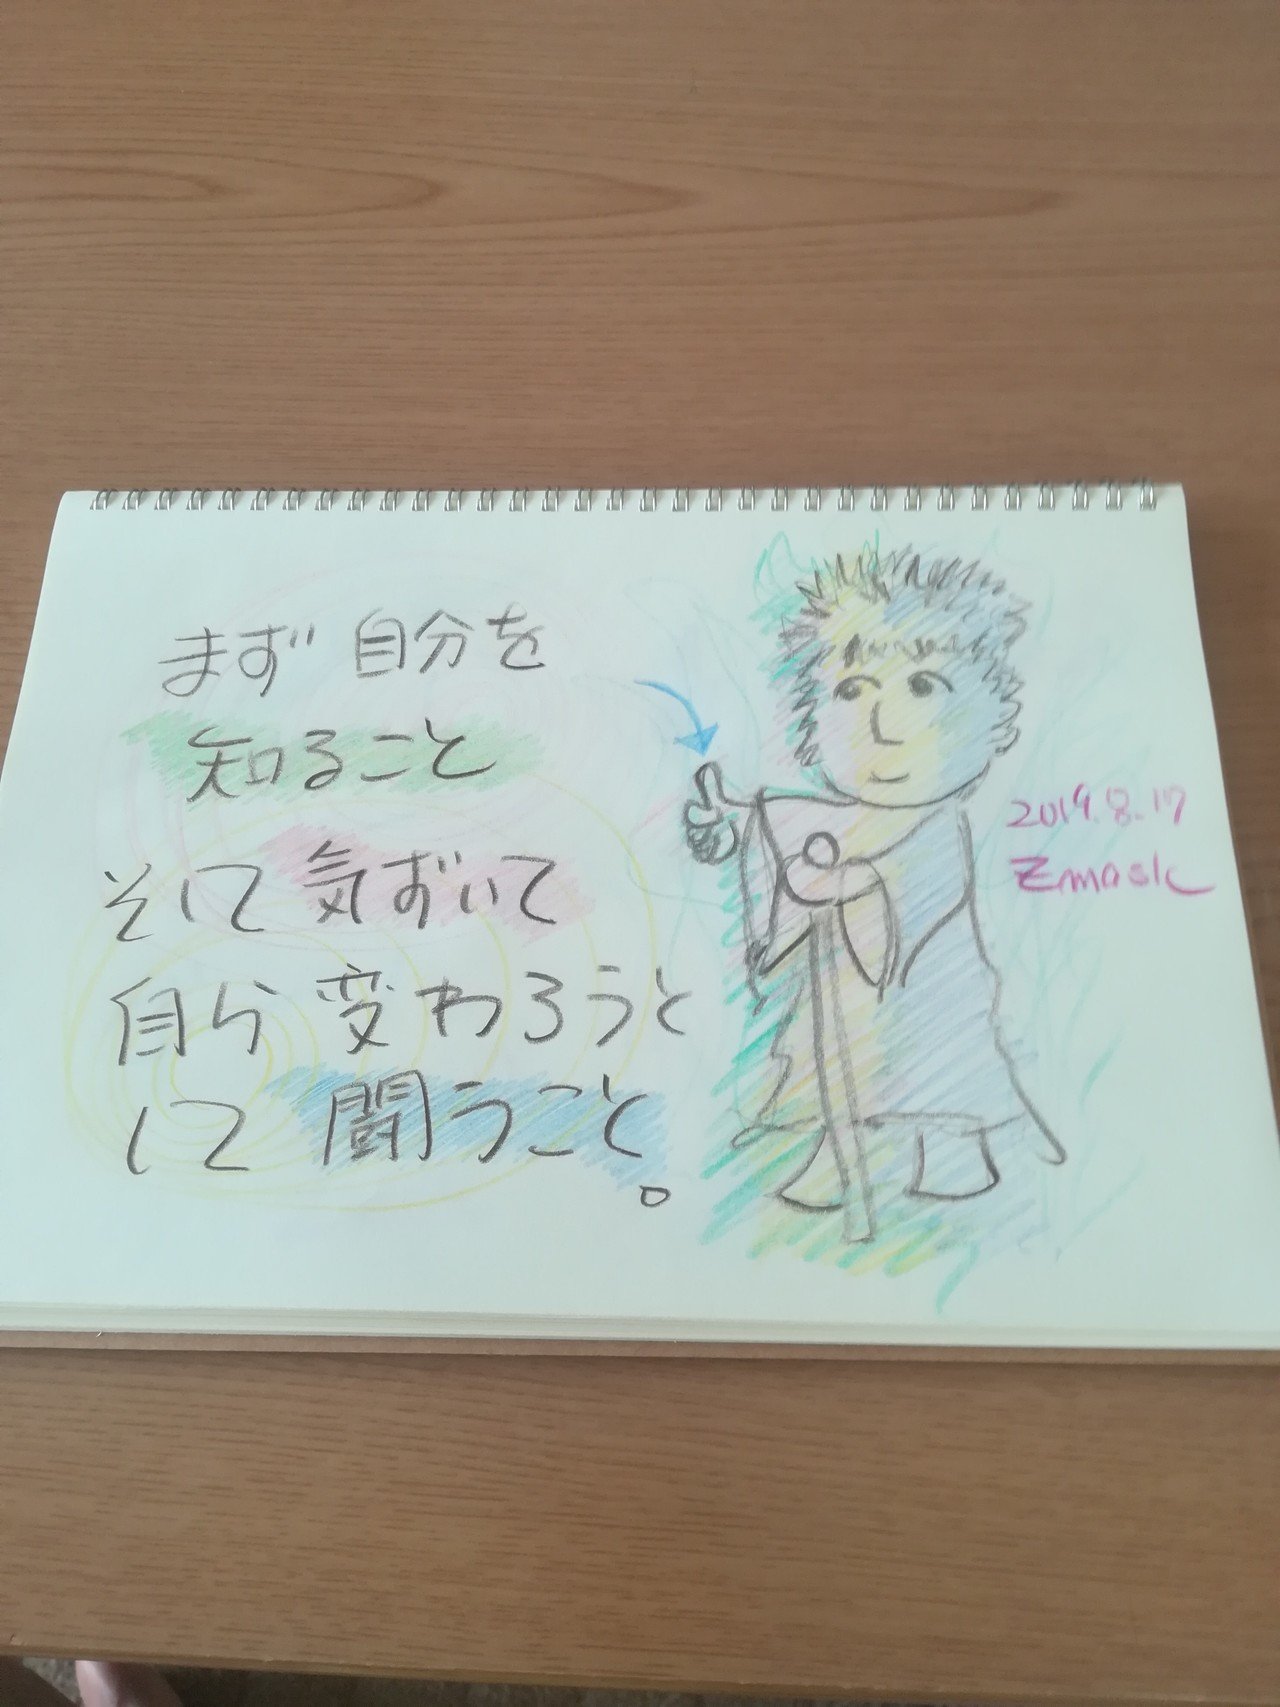 まず自分を
知ること
そして気ずいて
自ら変わろうと
して闘うこと。
2019.8.17
Zmask